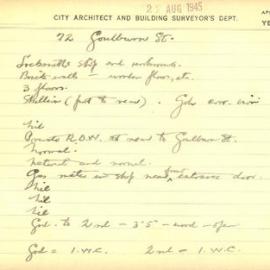 23 AUG 1945
CITY ARCHITECT AND BUILDING SURVEYOR'S DEPT.
72 Goulburn St.
Locksmiths shop and workrooms.
Brick walls - wooden floors, etc.
3 floors.
nil
Private R.O.W. at rear to Goulburn St.
normal.
natural and normal.
Gas meter in shop near front entrance door.
nil
nil
nil
Gd. to 2nd - 3'5 - wood - open
Gd = 1. W.C. 2nd = 1. W.C.